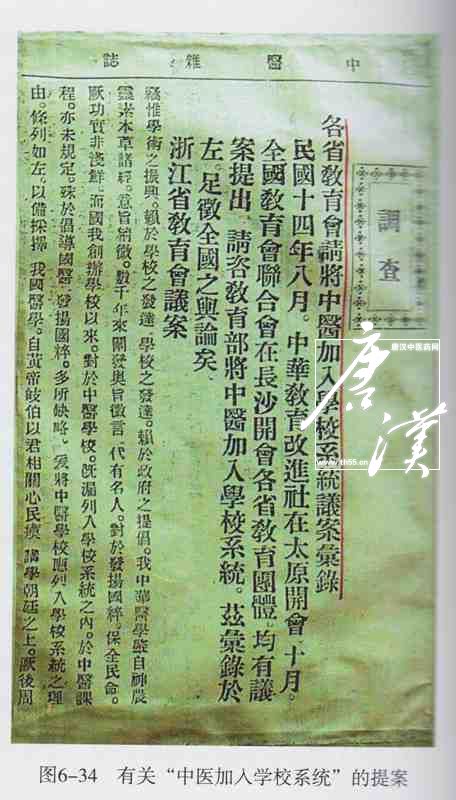 中醫雜誌
調查
各省教育會請將中醫加入學校系統議案彙錄
民國十四年八月。中華教育改進社在太原開會、十月。
全國教育會聯合會在長沙開會各省教育團體。均有議
案提出、請咨教育部將中醫加入學校系統。茲彙錄於
左。足徵全國之輿論矣、
浙江省教育會議案
竊惟學術之振興。賴於學校之發達、學校之發達。賴於政府之提倡。我中華醫學肇自神農
靈素本草諸經。意旨精微。數千年來闡發奧旨微言、代有名人。對於發揚國粹。保全民命。
厥功實非淺鮮。而國我創辦學校以來。對於中醫學校。旣漏列入學校系統之內。於中醫課
程。亦未規定。殊於倡導國醫、發揚國粹。多所缺略。爰將中醫學校應列入學校系統之理
由。條列如左。以備採擇 我國醫學。自黃帝岐伯以君相關心民瘼、講學朝廷之上。厥後周
唐漢
唐汉中医药网
www.th55.cn
图6-34 有关“中医加入学校系统”的提案